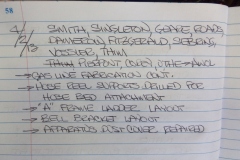 38
4/2/13 SMITH, SINGLETON, GEARE, ROADS,
CAMERON, FITZGERALD, SERBENS,
VOSSLER, THIM
THIM PIERPONT, COVEY, UTHE → AWOL
→ GAS LINE FABRICATION CONT.
→ HOSE REEL SUPPORTS DRILLED FOR
HOSE BED ATTACHMENT
→ "A" FRAME LADDER LAYOUT
→ BELL BRACKET LAYOUT
→ APPARATUS DUST COVER REPAIRED